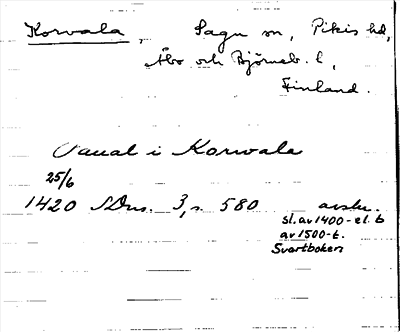 Korvala, Sagu sn, Pikis hd,
Åbo och Björneb. l,
Finland.
i Korwala
25/6
1420 SDns. 3, s. 580 avskr.
sl. av 1400- el. b
av 1500-t.
Svartboken